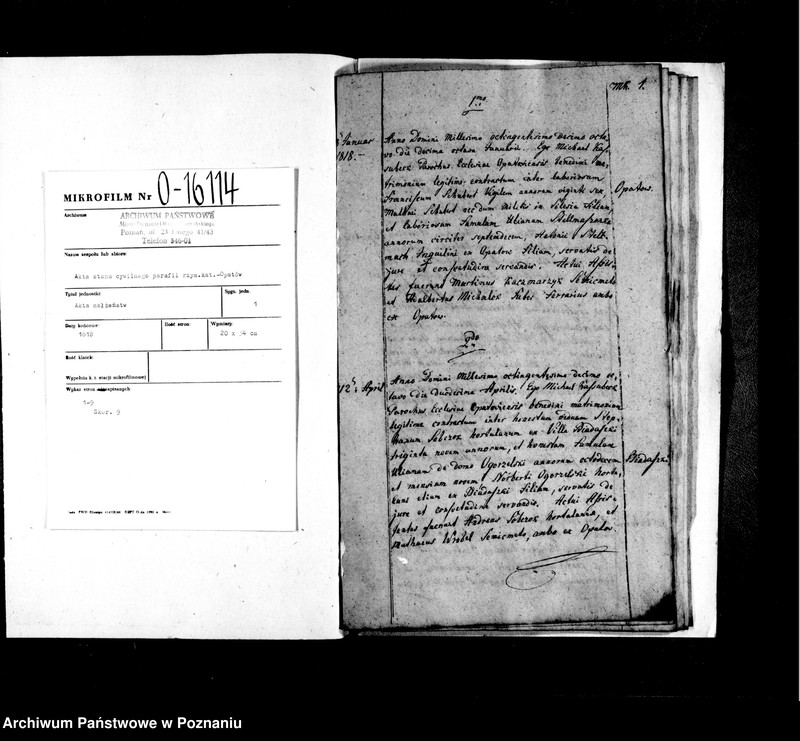 MIKROFILM Nr O-16114
Archiwum
ARCHIWUM PAŃSTWOWE
Poznań, ul. 23 Lutego 41/43
Telefon 546-01
Nazwa zespołu lub zbioru:
Akta stanu cywilnego parafii rzym.kat.-Opatów
Tytuł jednostki:
Akta małżeństw
Sygn. jedn.
1
Daty końcowe:
1818
Ilość stron:
Wymiary:
20 x 34 cm
Ilość klatek:
Wypełnia k. i. stacji mikrofilmowej
Wykaz stron
1-9
Skor. 9
1mo
1.
Januar
1818.
Anno Domini Millesimo octingentesimo decimo octa
vo die decima octava Januarii. Ego Michael
Parochus Ecclesiae Opatoviensis benedixi ma
trimonium legitime contractum inter laboriosum
Franciscum Schubert annorum viginti sex
Schubert militis in Silesia filium,
et laboriosam famulam
annorum circiter septendecim, Antonii
Inquilini ex Opatow filiam, servatis de
jure et consuetudine servandis. Actui Assis
tes fuerunt Martinus Kaczmarzyk
et Adalbertus Michalek Faber Ferrarius ambo
ex Opatow.
Opatow.
2do
12 April
Anno Domini Millesimo octingentesimo decimo oc
tavo die duodecima Aprilis. Ego Michael
Parochus Ecclesiae Opatoviensis benedixi matrimonium
legitime contractum inter honestum viduum Step
hanum Sobczok hortulanum ex Villa Biadaszki
triginta novem annorum, et honestam famulam
de domo Ogorzelski annorum octodecem
et mensium novem Norberti Ogorzelski
etiam ex Biadaszki filiam, servatis de
jure et consuetudine servandis. Actui Assis
tentes fuerunt Andreas Sobczok hortulanus, et
Mathaeus Wrobel ambo ex Opatow.
Biadaszki
Archiwum Państwowe w Poznaniu